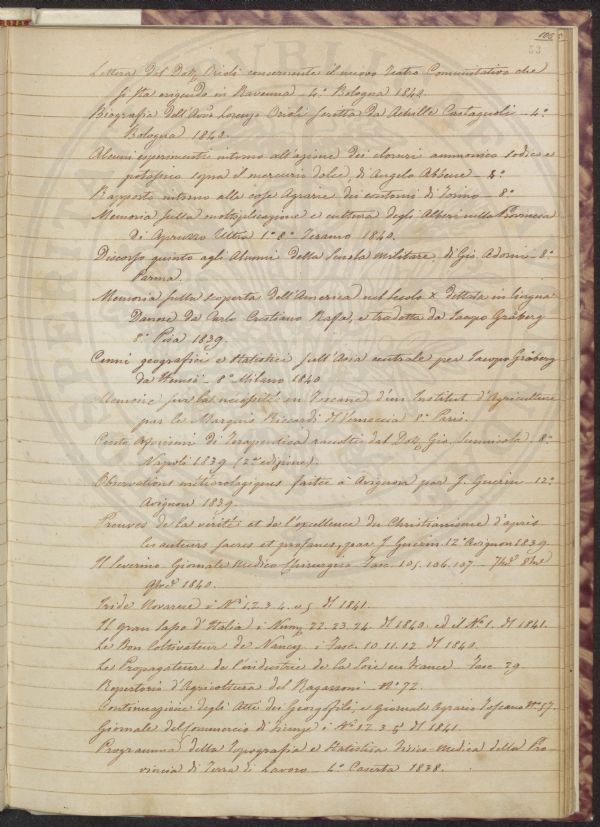 103
53
Lettera del Dott. Orioli concernente il nuovo Teatro Comunitativo che
si sta erigendo in Ravenna _ 4.° Bologna 1840.
Biografia dell'Avv. Lorenzo Orioli scritta da Achille Castagnoli _ 4.°
Bologna 1840.
Alcuni esperimenti intorno all'azione dei cloruri ammonico sodico e
potassico sopra il mercurio dolce, di Angelo Abbene _ 8.°
Rapporto intorno alle cose Agrarie dei contorni di Torino _ 8.°
Memoria sulla moltiplicazione e cultura degli Alberi nella Provincia
di Apruzzo Ultra 1.° 8.° Teramo 1840.
Discorso quinto agli Alunni della Scuola Militare, di Gio. Adorni _ 8.°
Parma.
Memoria sulla scoperta dell'America nel Secolo X dettata in lingua
Danese da Carlo Cristiano Rafn, e tradotta da Jacopo Gråberg
8.° Pisa 1839.
Cenni geografici e statistici sull'Asia centrale per Jacopo Gråberg
da Hemsö _ 8.° Milano 1840
Memoire sur la necessité en Toscane d'un Institut d'Agriculture
par le Marquis Riccardi Vernaccia 8.° Paris.
Cento Aforismi di Terapeutica raccolti dal Dott. Gio. _ 8.°
Napoli 1839 (2.a edizione).
Observations météorologiques faites à Avignon par J. Guerin _ 12.°
Avignon 1839.
Preuves de la vérité et de l'excellence du Christianisme d'après
les auteurs sacrés et profanes, par J. Guerin. 12.° Avignon 1839.
Il Severino Giornale Medico Chirurgico Fasc. 105. 106. 107. _ 7bre 8bre
9bre 1840.
Iride Novarese i N.i 1. 2. 3. 4. e 5 del 1841.
Il Gran Sasso d'Italia i Num. 22. 23. 24. del 1840. ed il N.° 1. del 1841.
Le Bon Coltivateur de Nancy i Fasc. 10. 11. 12. del 1840.
Le Propagateur de l'industrie de la Soie en France Fasc. 29.
Repertorio d'Agricoltura del Ragazzoni _ N.° 72.
Continuazione degli Atti dei Georgofili, e giornale Agrario Toscano N.° 57.
Giornale del Commercio di Firenze i N.i 1. 2. 3. 5. del 1841.
Programma della Topografia e Statistica Fisico-Medica della Pro-
vincia di Terra di Lavoro _ 4.° Caserta 1838.